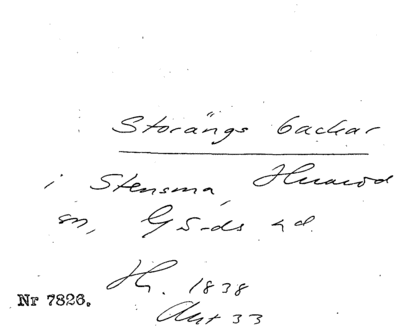 Storängs backar
i Stensma, Huaröd
sn, Gärds hd.
H. 1838
Akt 33
Nr 7826.